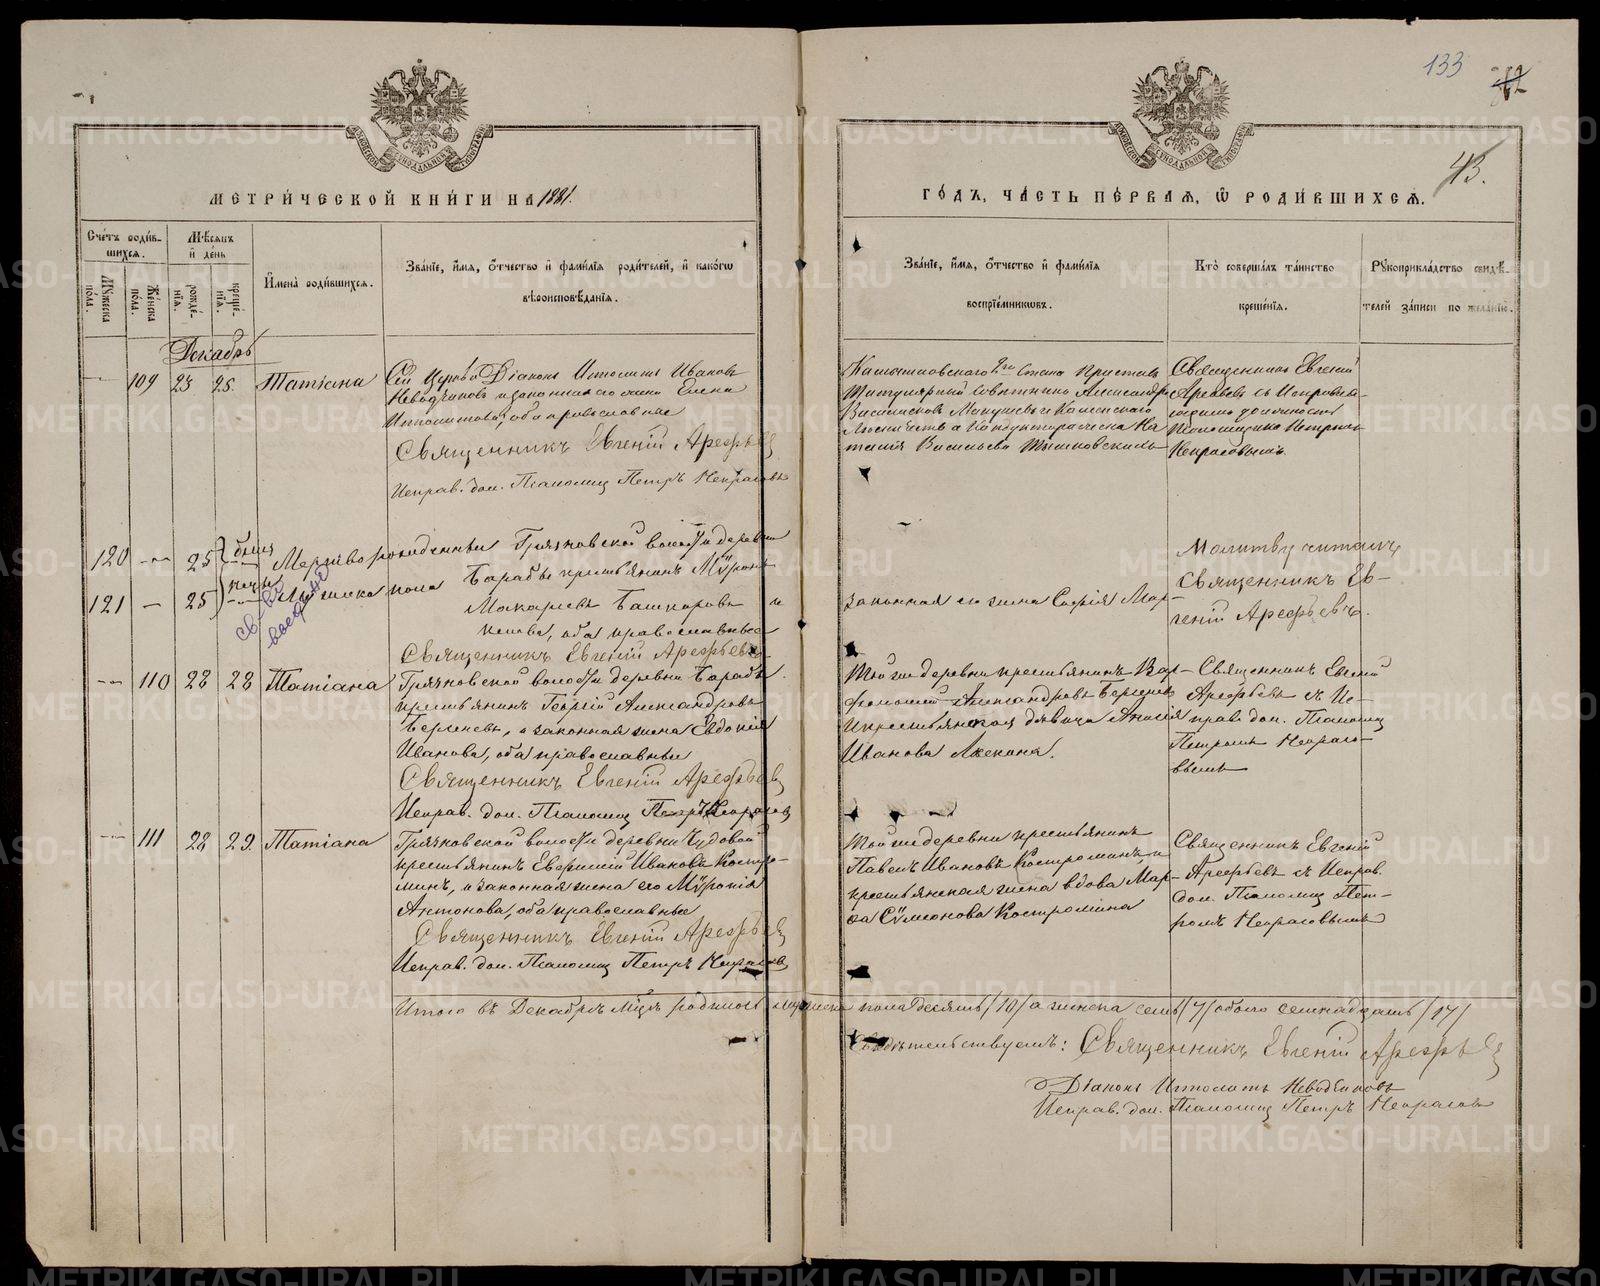 133
43.
МЕТРИ́ЧЕСКОЙ КНИ́ГИ НА 1881.
ГО́ДЪ, ЧА́СТЬ ПЕ́РВАЯ, Ѿ РОДИ́ВШИХСЯ.
Сче́тъ роди́вшихся.
Мꙋжеска по́ла.
Же́нска по́ла.
Мѣ́сяцъ и҆ де́нь
рожде́нїя.
креще́нїя.
И҆мена̀ роди́вшихся.
Зва́нїе, и҆́мя, о҆́тчество и҆ фами́лїя роди́телей, и҆ како́гѡ
вѣроисповѣ́данїя.
Зва́нїе, и҆́мя, о҆́тчество и҆ фами́лїя
воспрїе́мникѡвъ.
Кто̀ соверша́лъ та́инство
креще́нїя.
Рꙋкоприкла́дство свидѣ́телей за́писи по жела́нїю.
Декабрь
109 23 25. Татіана
Сей Церкви Діаконъ Ипполитъ Ивановъ
Неводчиковъ и законная его жена Елена
Ипполитова, оба православные
Священникъ Евгеній Арефьевъ
Исправ. дол. Псаломщ Петръ Некрасовъ
Камышловскаго 2го Стана Приставъ
Титулярный Совѣтникъ Александръ
Васильевъ
Священникъ Евгеній
Арефьевъ съ Исправля-
ющимъ должность
Псаломщика Петромъ
Некрасовымъ.
120 25 Мертворожденные
121 25 Мужска пола
Грязновской волости деревни
Барабы крестьянинъ Мѷронъ
Макаріевъ Башкировъ и
законная его жена Софія Мар-
кова, оба православные
Священникъ Евгеній Арефьевъ
Молитву читалъ
Священникъ Ев-
геній Арефьевъ.
110 28 28 Татіана
Грязновской волости деревни Барабы
крестьянинъ Георгій Александровъ
Берсеневъ, и законная жена Евдокія
Иванова, оба православные
Священникъ Евгеній Арефьевъ
Исправ. дол. Псаломщ Петръ Некрасовъ
Той же деревни крестьянинъ Вар-
фоломей Александровъ Берсеневъ
и крестьянская дѣвица Анисія
Иванова
Священникъ Евгеній
Арефьевъ съ Ис-
прав. дол. Псаломщ
Петромъ Некрасо-
вымъ
111 28 29. Татіана
Грязновской волости деревни Чудовой
крестьянинъ Евфимій Ивановъ Костро-
минъ, и законная жена его Мѷропія
Антонова, оба православные
Священникъ Евгеній Арефьевъ
Исправ. дол. Псаломщ Петръ Некрасовъ
Той же деревни крестьянинъ
Павелъ Ивановъ Костроминъ, и
крестьянская жена вдова Мар-
ѳа Сѷмеонова Костромина
Священникъ Евгеній
Арефьевъ съ Исправ.
дол. Псаломщ Пет-
ромъ Некрасовымъ
Итого въ Декабрѣ мцѣ родилось мужска пола десять /10/ а женска семь /7/ обоего семнадцать /17/
Свидѣтельствуемъ: Священникъ Евгеній Арефьевъ
Діаконъ Ипполитъ Неводчиковъ
Исправ. дол. Псаломщ Петръ Некрасовъ
METRIKI.GASO-URAL.RU